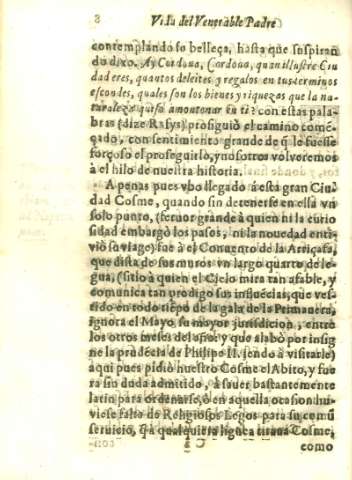 8 Vida del Venerable Padre
contemplando su belleça, hasta que suspiran
do dixo. Ay Cordoua, Cordoua, quan illustre Ciu
dad eres, quantos deleites y regalos en tus terminos
escondes, quales son los bienes y riquezas que la na-
turaleza quiso amontonar en ti? con estas pala-
bras (dize Rasys) prosiguiò el camino comē-
çado, con sentimiento grande de q̃ le fuesse
forçoso el proseguirlo, y nosotros volveremos
à el hilo de nuestra historia.
A penas pues vbo llegado à esta gran Ciu
dad Cosme, quando sin detenerse en ella vn
solo punto, (feruor grande à quien ni la curio
sidad embargò los pasos, ni la nouedad enti-
viò su viage) fue à el Conuento de la Arriçafa,
que dista de sus muros vn largo quarto de le-
gua, (sitio à quien el Cielo mira tan afable, y
comunica tan prodigo sus influēcias, que ves-
tido en todo tiēpo de la gala de la Primauera,
ignora el Mayo su mayor jurisdicion, entre
los otros meses del año, y que alabò por insig
ne la prudēcia de Philipe II. jendo à visitarle)
aqui pues pidiò nuestro Cosme el Abito, y fue
ra sin duda admitido, à sauer bastantemente
latin para ordenarse, ò en aquella ocasion hu-
viese falta de Religiosos Legos para su comũ
seruicio, q̃ à qualquiera linea tiraua Cosme,
como